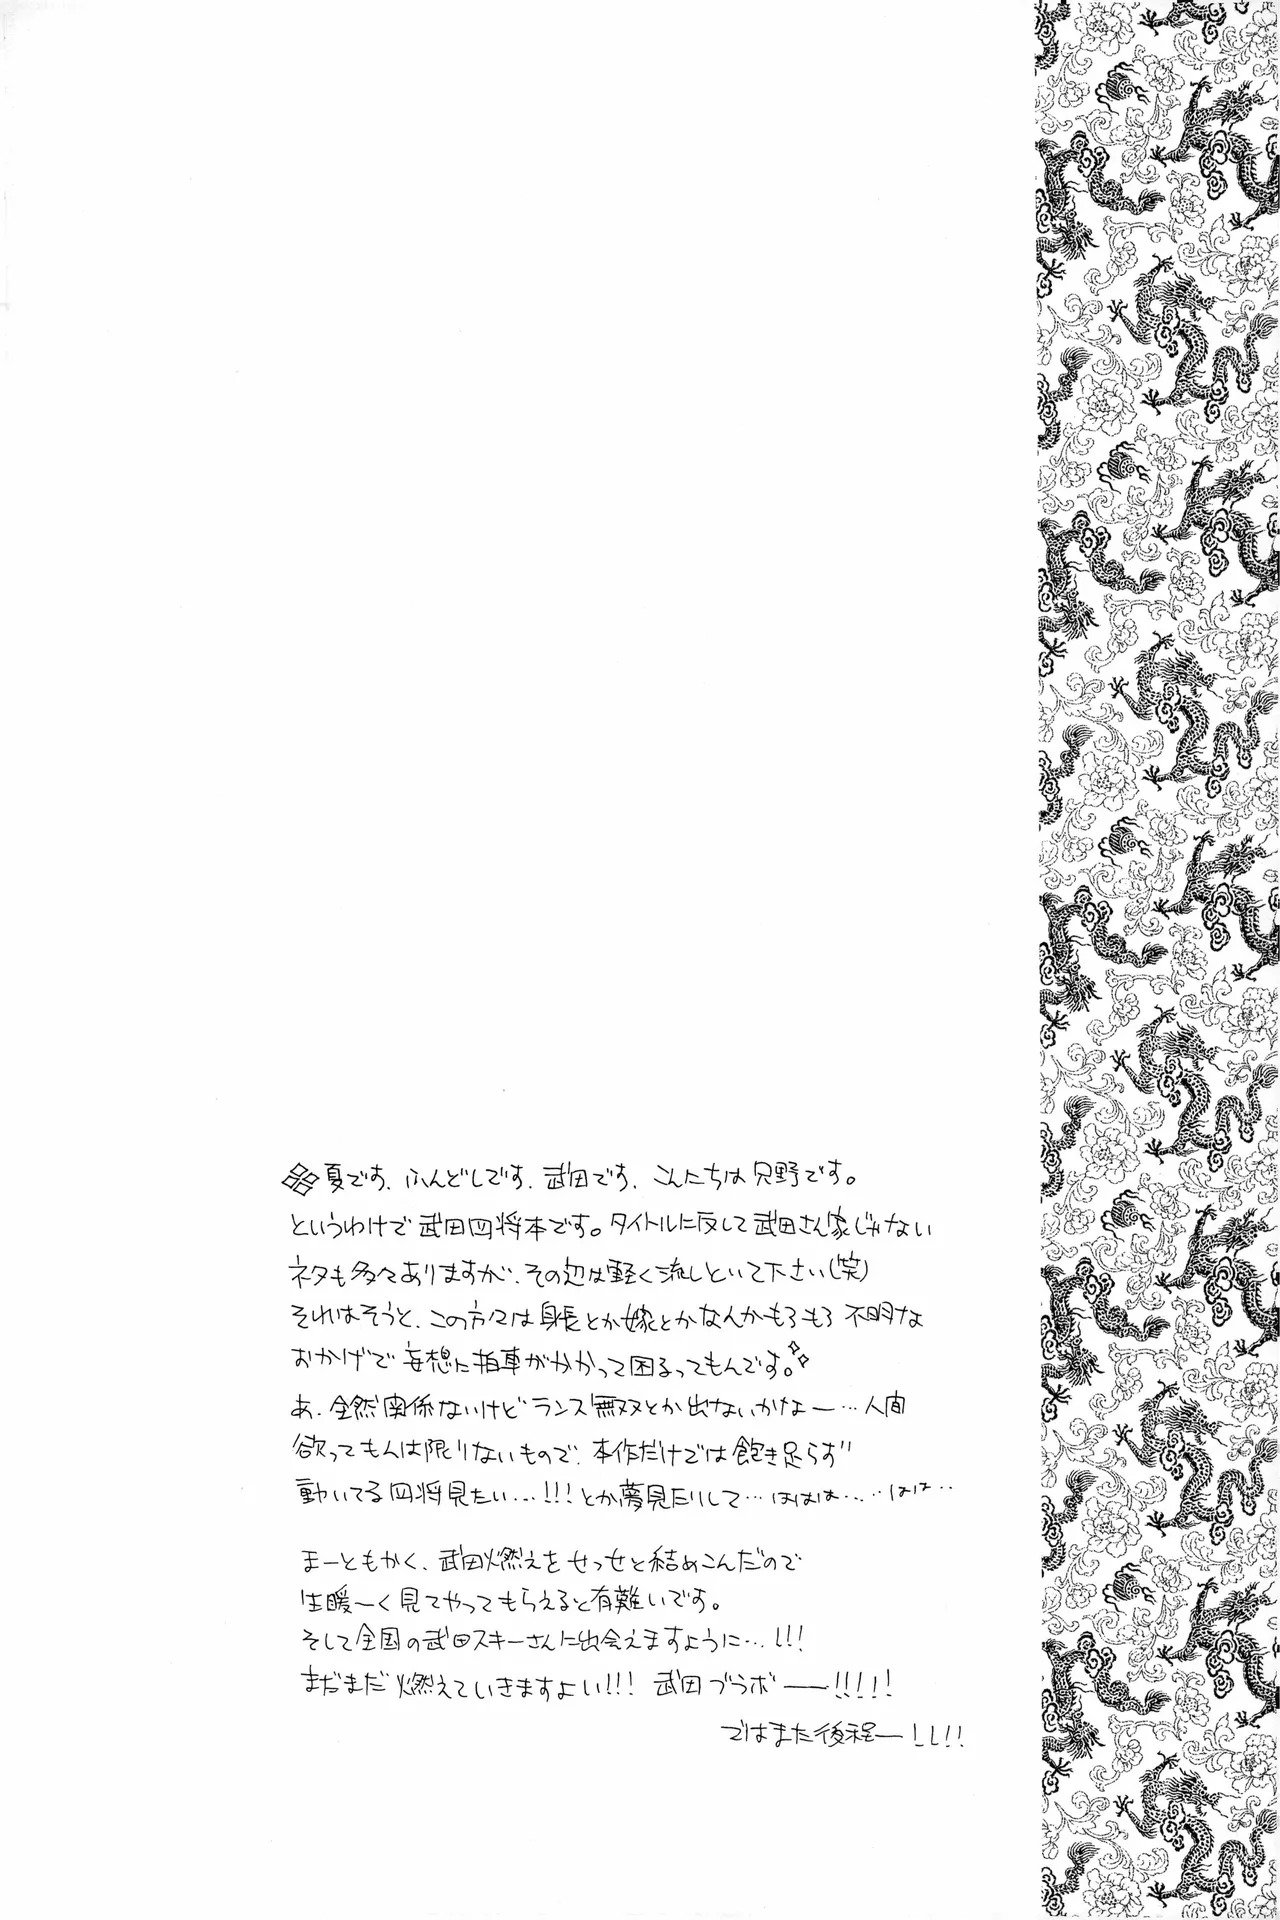 夏です、ふんどしです、武田です、こんにちは兄野です。
というわけで武田四将本です。タイトルに反して武田さん家じゃない
ネタも多々ありますが、その辺は軽く流しといて下さい(笑)
それはそうと、この方々は身長とか嫁とかなんかもろもろ不明な
おかげで妄想に拍車がかかって困るってもんです。
あ、全然関係ないけどランス無双とか出ないかなー…人間
欲ってもんは限りないもので、本作だけでは飽き足らず
動いてる四将見たい…!!!とか夢見たりして…ははは……はは‥
まーともかく、武田燃えをせっせと詰めこんだので
生暖ーく見てやってもらえると有難いです。
そして全国の武田スキーさんに出会えますように…!!!
まだまだ燃えていきますよい!!!武田ブラボー!!!!!
ではまた後程ー!!!!